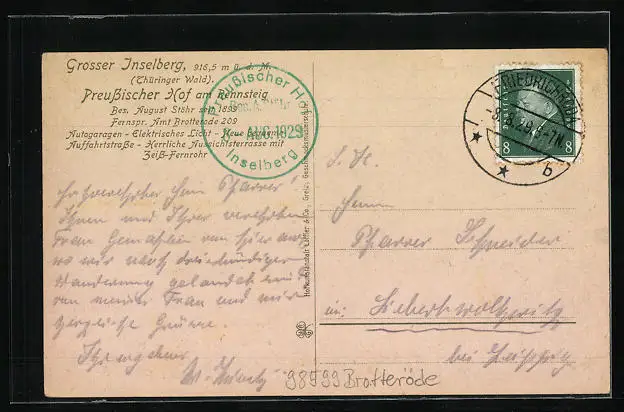 Grosser Inselberg, 916,5 m ü. d. M.
(Thüringer Wald).
Preußischer Hof am Rennsteig
Bes. August Stöhr seit 1895
Fernspr. Amt Brotterode 209
Autogaragen - Elektrisches Licht - Neue
Auffahrtstraße - Herrliche Aussichtsterrasse mit
Zeiß-Fernrohr
Preußischer H
Bes. A. Stöhr
AUG. 1929
Inselberg
FRIEDRICHRODA
-9.8.29.6-7N.
b
8 8
Sehr verehrter Herr Pfarrer!
Ihnen und Ihrer verehrten
Frau Gemahlin von hier aus,
wo wir nach dreistündiger
Wanderung gelandet sind
von meiner Frau und mir
herzliche Grüsse.
Ihr ergebener
S. H.
Herrn
Pfarrer Schneider
in: Liebertwolkwitz
bei Leipzig
98599 Brotteröde